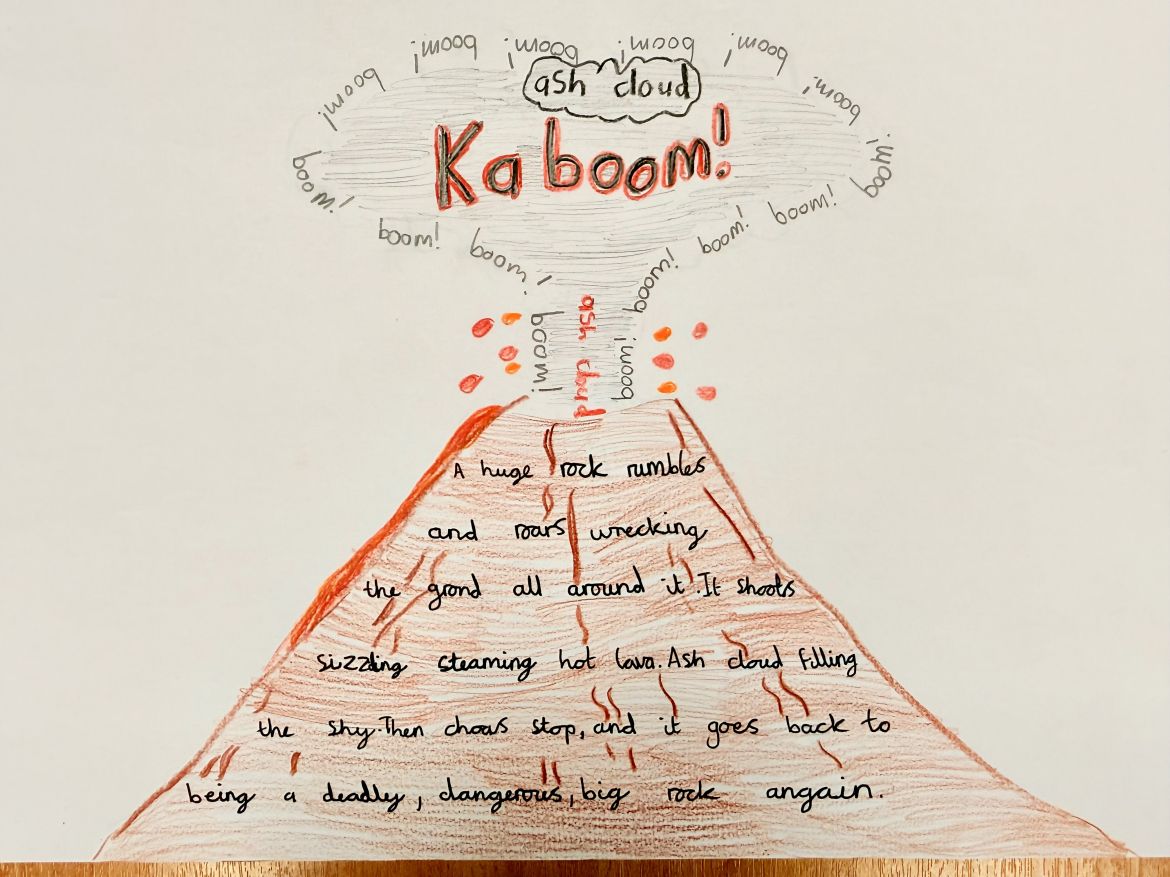 boom! boom! boom! boom!
boom! boom!
ash cloud
Kaboom!
boom! boom!
boom! boom! boom! boom!
boom! boom!
boom! ash cloud boom!
A huge rock rumbles
and roars wrecking
the grond all around it. It shoots
sizzling steaming hot lava. Ash cloud filling
the shy. Then stop, and it goes back to
being a deadly, dangerous, big rock angain.